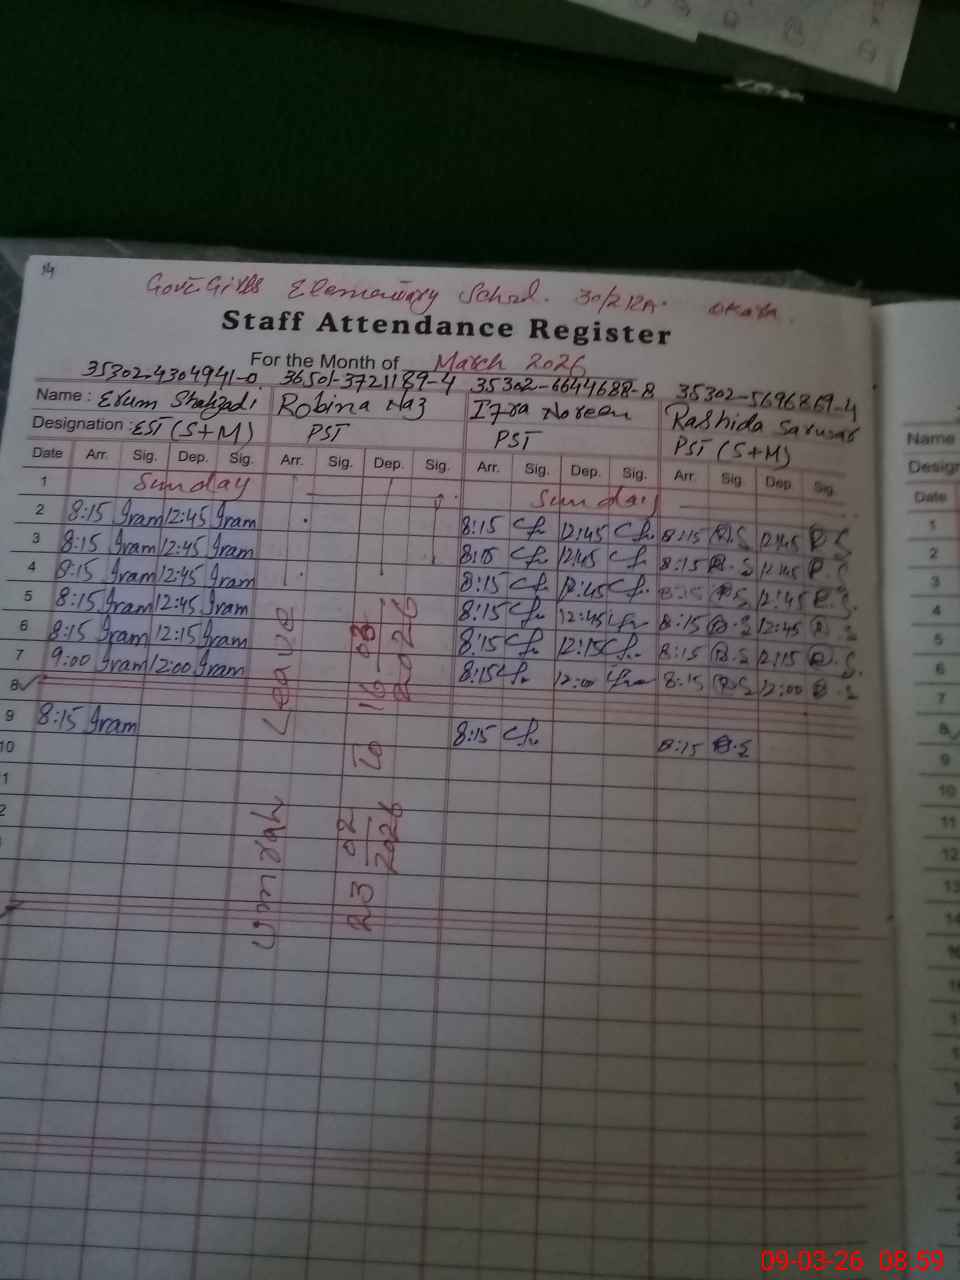 14
Govt. Girls Elementary School. 30/2 1RA. okara.
Staff Attendance Register
For the Month of March 2026
35302-4304941-0 36501-3721189-4 35302-6644688-8 35302-5696869-4
Name : Erum Shahzadi Robina Naz Iqra Noreen Rashida Sarwar
Designation : EST (S+M) PST PST PST (S+M)
Date Arr. Sig. Dep. Sig. Arr. Sig. Dep. Sig. Arr. Sig. Dep. Sig. Arr. Sig. Dep. Sig.
1 Sunday Sunday
2 8:15 Iram 12:45 Iram 8:15 12:45 8:15 R.S 12:45 R.S
3 8:15 Iram 12:45 Iram 8:15 12:45 8:15 R.S 12:45 R.S
4 8:15 Iram 12:45 Iram 8:15 12:45 8:15 R.S 12:45 R.S
5 8:15 Iram 12:45 Iram 8:15 12:45 8:15 R.S 12:45 R.S
6 8:15 Iram 12:15 Iram 8:15 12:15 8:15 R.S 12:15 R.S
7 9:00 Iram 12:00 Iram 8:15 12:00 8:15 R.S 12:00 R.S
8
9 8:15 Iram 8:15 8:15 R.S
10
1
2
Umrah Leave
23 02 2026 To 16 03 2026
Name
Design
Date
1
2
3
4
5
6
7
8
9
10
11
12
13
14
09-03-26 08.59